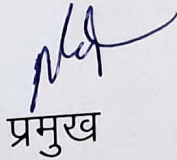 प्रमुख